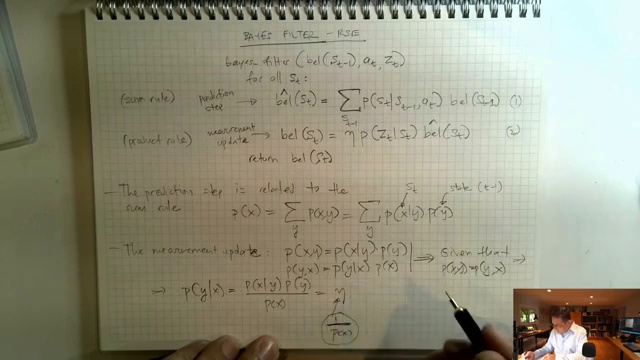 BAYES FILTER - RSE
bayes_filter (bel(S_{t-1}), a_t, Z_t)
for all S_t:
(sum rule) prediction step → bel^(S_t) = Σ_{S_{t-1}} p(S_t|S_{t-1}, a_t) bel(S_{t-1}) (1)
(product rule) measurement update → bel(S_t) = η p(Z_t|S_t) bel^(S_t) (2)
return bel(S_t)
- The prediction step is related to the sum rule
S_t state (t-1)
p(x) = Σ_y p(x,y) = Σ_y p(x|y) p(y)
- The measurement update: p(x,y) = p(x|y) · p(y)
p(y,x) = p(y|x) p(x)
⟹ Given that p(x,y) = p(y,x) ⟹
→ p(y|x) = p(x|y) p(y) / p(x) = η
1 / p(x)